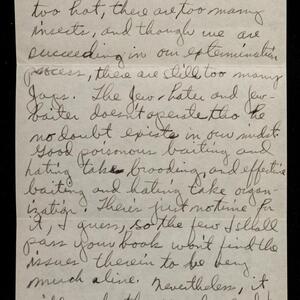 too hot, there are too many
insects, and though we are
succeeding in our extermination
process, there are still too many
Japs. The Jew-hater and Jew-
baiter doesn't operate tho he
no doubt exists in our midst.
Good poisonous baiting and
hating take brooding, and effective
baiting and hating take organ-
ization. There's just no time for
it, I guess, so the few I shall
pass your book won't find the
issues therein to be very
much alive. Nevertheless, it